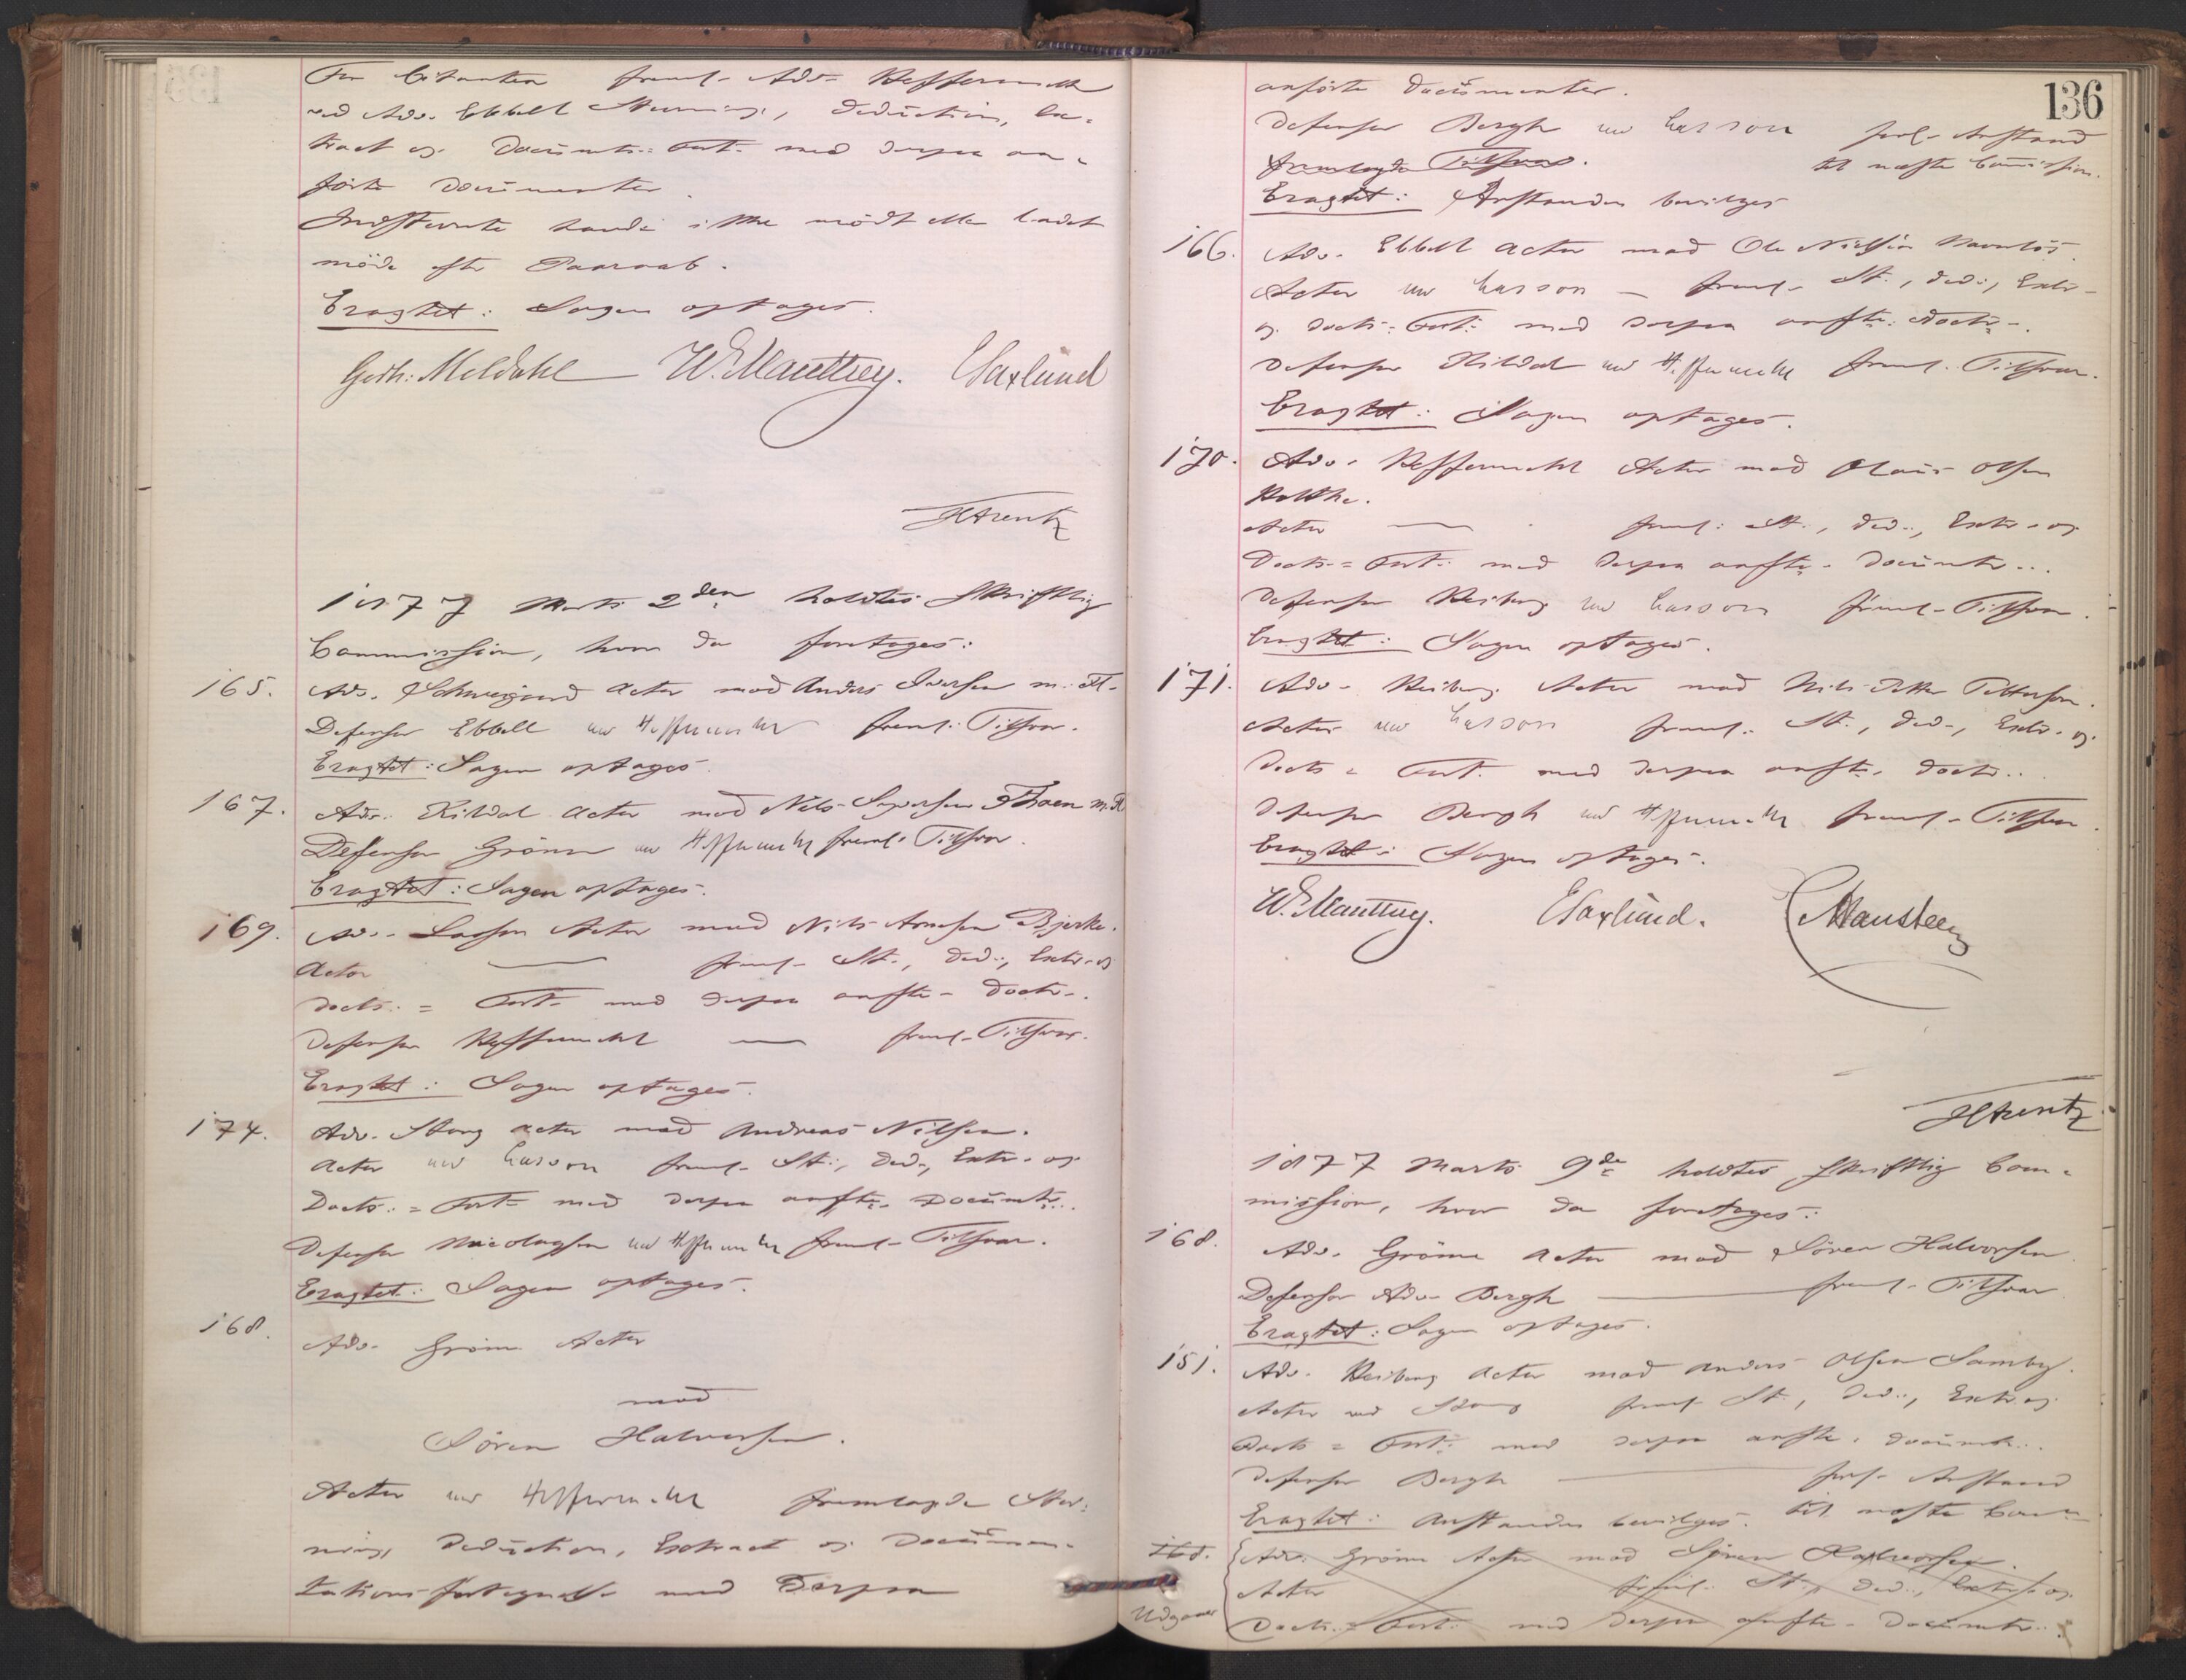 For Citanten freml. Adv. Heffermehl
ved Adv. Ebbell Stevning, Deduction, Ex-
tract og Documts.-Fort. med derpaa an-
förte Documenter.
Indstevnte havde ikke mödt eller ladet
möde efter Paaraab.
Eragtet: Sagen optages.
Gerh. Meldahl W. E. Manthey. E Saxlund
H Arentz
1877 Marts 2den holdtes Skriftlig
Commission, hvor da foretoges:
165. Adv. Schweigaard Actor mod Anders Iversen m. Fl.
Defensor Ebbell ved Heffermehl freml. Tilsvar.
Eragtet: Sagen optages.
167. Adv. Kildal Actor mod Nils Siversen Thoen m. Fl
Defensor Grönn ved Heffermehl freml. Tilsvar.
Eragtet: Sagen optages.
169. Adv. Lasson Actor mod Nils Arnesen Bjerke.
Actor — freml. St., Ded., Extr. og
Docts.= Fort. med derpaa anfte. Doctr.
Defensor Heffermehl — freml. Tilsvar.
Eragtet: Sagen optages.
174. Adv. Stang Actor mod Andreas Nilsen.
Actor ved Lasson freml. St., Ded., Extr. og
Docts.= Fort. med derpaa anfte. Documtr.
Defensor Nicolaysen ved Heffermehl freml. Tilsvar.
Eragtet: Sagen optages.
168. Adv. Grönn Actor
mod
Sören Halvorsen.
Actor ved Heffermehl fremlagde Stev-
ning, Deduction, Extract og Documen-
tations-fortegnelse med Derpaa
136
anförte Documenter.
Defensor Bergh ved Lasson forl. Anstand
fremlagde Tilsvar. til næste Commission.
Eragtet: Anstanden bevilges
166. Adv. Ebbell Actor mod Ole Nielsen Navnlös.
Actor ved Lasson — freml. St., Ded., Extr.
og Docts.= Fort. med derpaa anfte. Doctr.
Defensor Kildal ved Heffermehl freml. Tilsvar.
Eragtet: Sagen optages.
170. Adv. Heffermehl Actor mod Olaus Olsen
Holthe.
Actor — freml. St., Ded., Extr. og
Docts.= Fort. med derpaa anfte. Documtr.
Defensor Heiberg ved Lasson freml. Tilsvar.
Eragtet: Sagen optages.
171. Adv. Heiberg Actor mod Nils Petter Pettersen.
Actor ved Lasson freml. St., Ded., Extr. og
Docts.= Fort. med derpaa anfte. Doctr.
Defensor Bergh ved Heffermehl freml. Tilsvar.
Eragtet: Sagen optages.
W. E. Manthey. E Saxlund. C Hansteen
H Arentz
1877 Marts 9de holdtes skriftlig Com-
mission, hvor da foretoges:
168. Adv. Grönn Actor mod Sören Halvorsen
Defensor Adv. Bergh — freml. Tilsvar
Eragtet: Sagen optages.
151. Adv. Heiberg Actor mod Anders Olsen Samby.
Actor ved Stang freml. St., Ded., Extr. og
Docts.= Fort. med derpaa anfte. Documtr.
Defensor Bergh — forl. Anstand
Eragtet: Anstanden bevilges. til næste Com
168. Adv. Grönn Actor mod Sören Halvorsen.
Actor freml. St., Ded., Extr. og
Udgaaer Docts.= Fort. med derpaa anfte. Documtr.